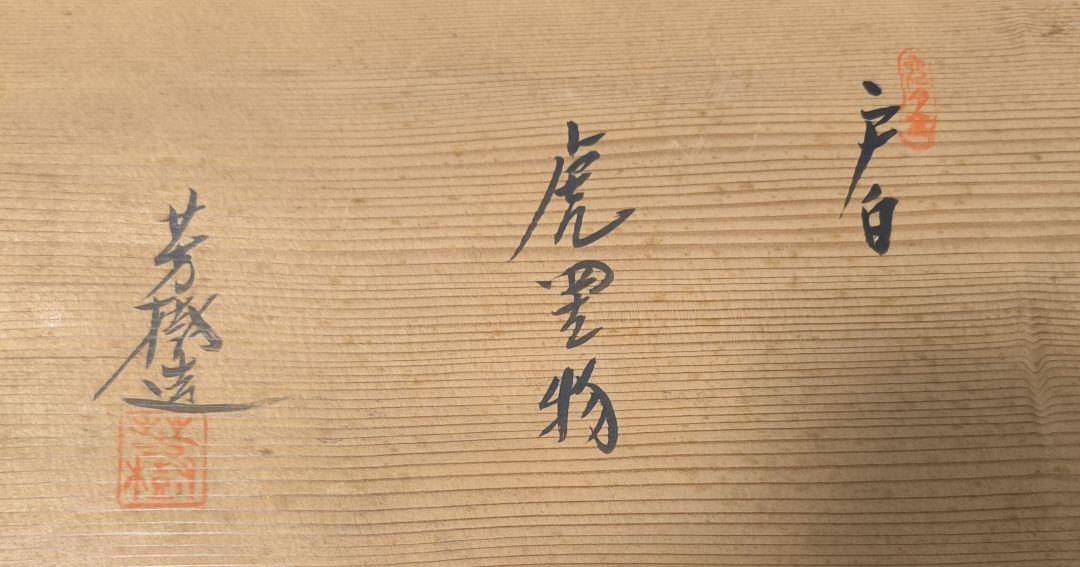 戸白
虎置物
芳樹造